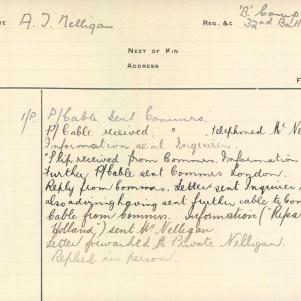 me A. J. Nelligan
Reg., &c
'B' Comp
32nd Batt
Next of Kin
Address
F
1/P. P/Cable sent Commrs.
P/Cable received, " , telephoned Mr Ne
Information sent Inquirer.
Slip received from Commrs. Information
Further P/Cable sent Commrs London.
Reply from Commrs. Letter sent Inquirer
also advising having sent further cable to Com
Cable from Commrs. Information ("Repa
Holland,") sent Mr Nelligan
Letter forwarded to Private Nelligan.
Replied in person.